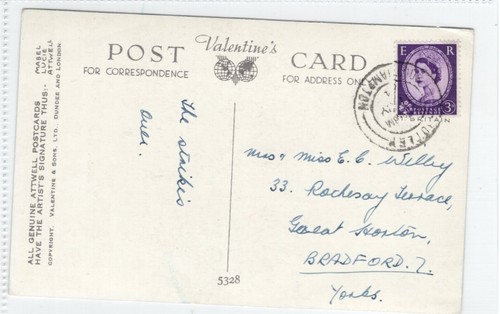 POST Valentine's CARD
FOR CORRESPONDENCE FOR ADDRESS ONLY
E R
3D
The strike is
over.
Miss E. C. Welby
33. Rothesay Terrace,
Great Horton,
BRADFORD. 7.
Yorks.
5328
ALL GENUINE ATTWELL POSTCARDS
HAVE THE ARTIST'S SIGNATURE THUS:-
MABEL
LUCIE
ATTWELL
COPYRIGHT. VALENTINE & SONS, LTD. DUNDEE AND LONDON